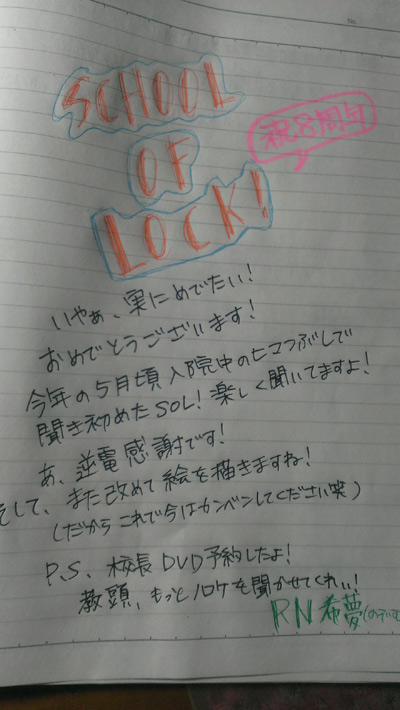 SCHOOL
OF
LOCK!
祝8周年
いやぁ、実にめでたい!
おめでとうございます!
今年の5月頃入院中のヒマつぶしで
聞き初めたSOL!楽しく聞いてますよ!
あ、逆電感謝です!
そして、また改めて絵を描きますね!
(だからこれで今はカンベンしてください笑)
P.S、校長DVD予約したよ!
教頭、もっとノロケを聞かせてくれぃ!
RN 希夢